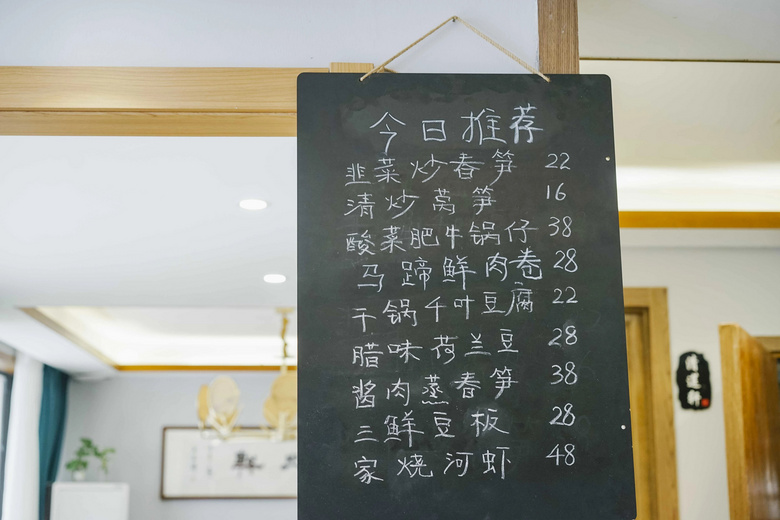 今日推荐
韭菜炒春笋 22
清炒莴笋 16
酸菜肥牛锅仔 38
马蹄鲜肉卷 28
干锅千叶豆腐 22
腊味荷兰豆 28
酱肉蒸春笋 38
三鲜豆板 28
家烧河虾 48